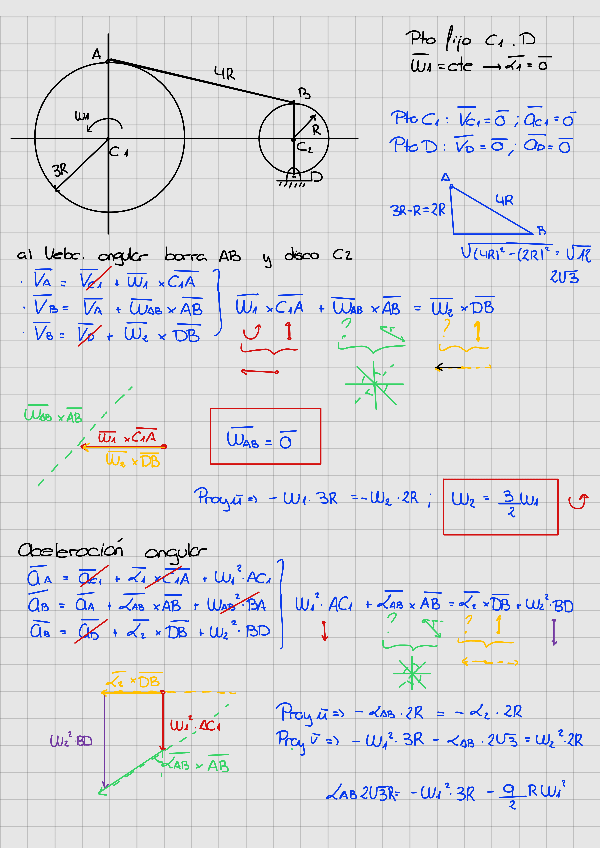 Pto fijo C1, D
W̄1 = cte → ᾱ1 = 0̄
A
4R
B
W1
R
C1
C2
3R
D
Pto C1: V̄C1 = 0̄ ; āC1 = 0̄
Pto D: V̄D = 0̄ ; āD = 0̄
A
3R-R = 2R
4R
B
√(4R)² - (2R)² = √12
2√3
a) Veloc. angular barra AB y disco C2
· V̄A = V̄C1 + W̄1 × C̄1Ā
· V̄B = V̄A + W̄AB × ĀB̄
· V̄B = V̄D + W̄2 × D̄B̄
W̄1 × C̄1Ā + W̄AB × ĀB̄ = W̄2 × D̄B̄
? ?
W̄AB × ĀB̄
W̄1 × C̄1Ā
W̄2 × D̄B̄
W̄AB = 0̄
Proy ū => - W1 · 3R = - W2 · 2R ;
W2 = 3/2 W1
Aceleración angular
āA = āC1 + ᾱ1 × C̄1Ā + W1² · AC1
āB = āA + ᾱAB × ĀB̄ + WAB² · BA
āB = āD + ᾱ2 × D̄B̄ + W2² · BD
W1² · AC1 + ᾱAB × ĀB̄ = ᾱ2 × D̄B̄ + W2² · BD
? ?
ᾱ2 × D̄B̄
W2² BD
W1² · AC1
ᾱAB × ĀB̄
Proy ū => - αAB · 2R = - α2 · 2R
Proy v̄ => - W1² · 3R - αAB · 2√3 = W2² · 2R
αAB 2√3R = - W1² · 3R - 9/2 R W1²